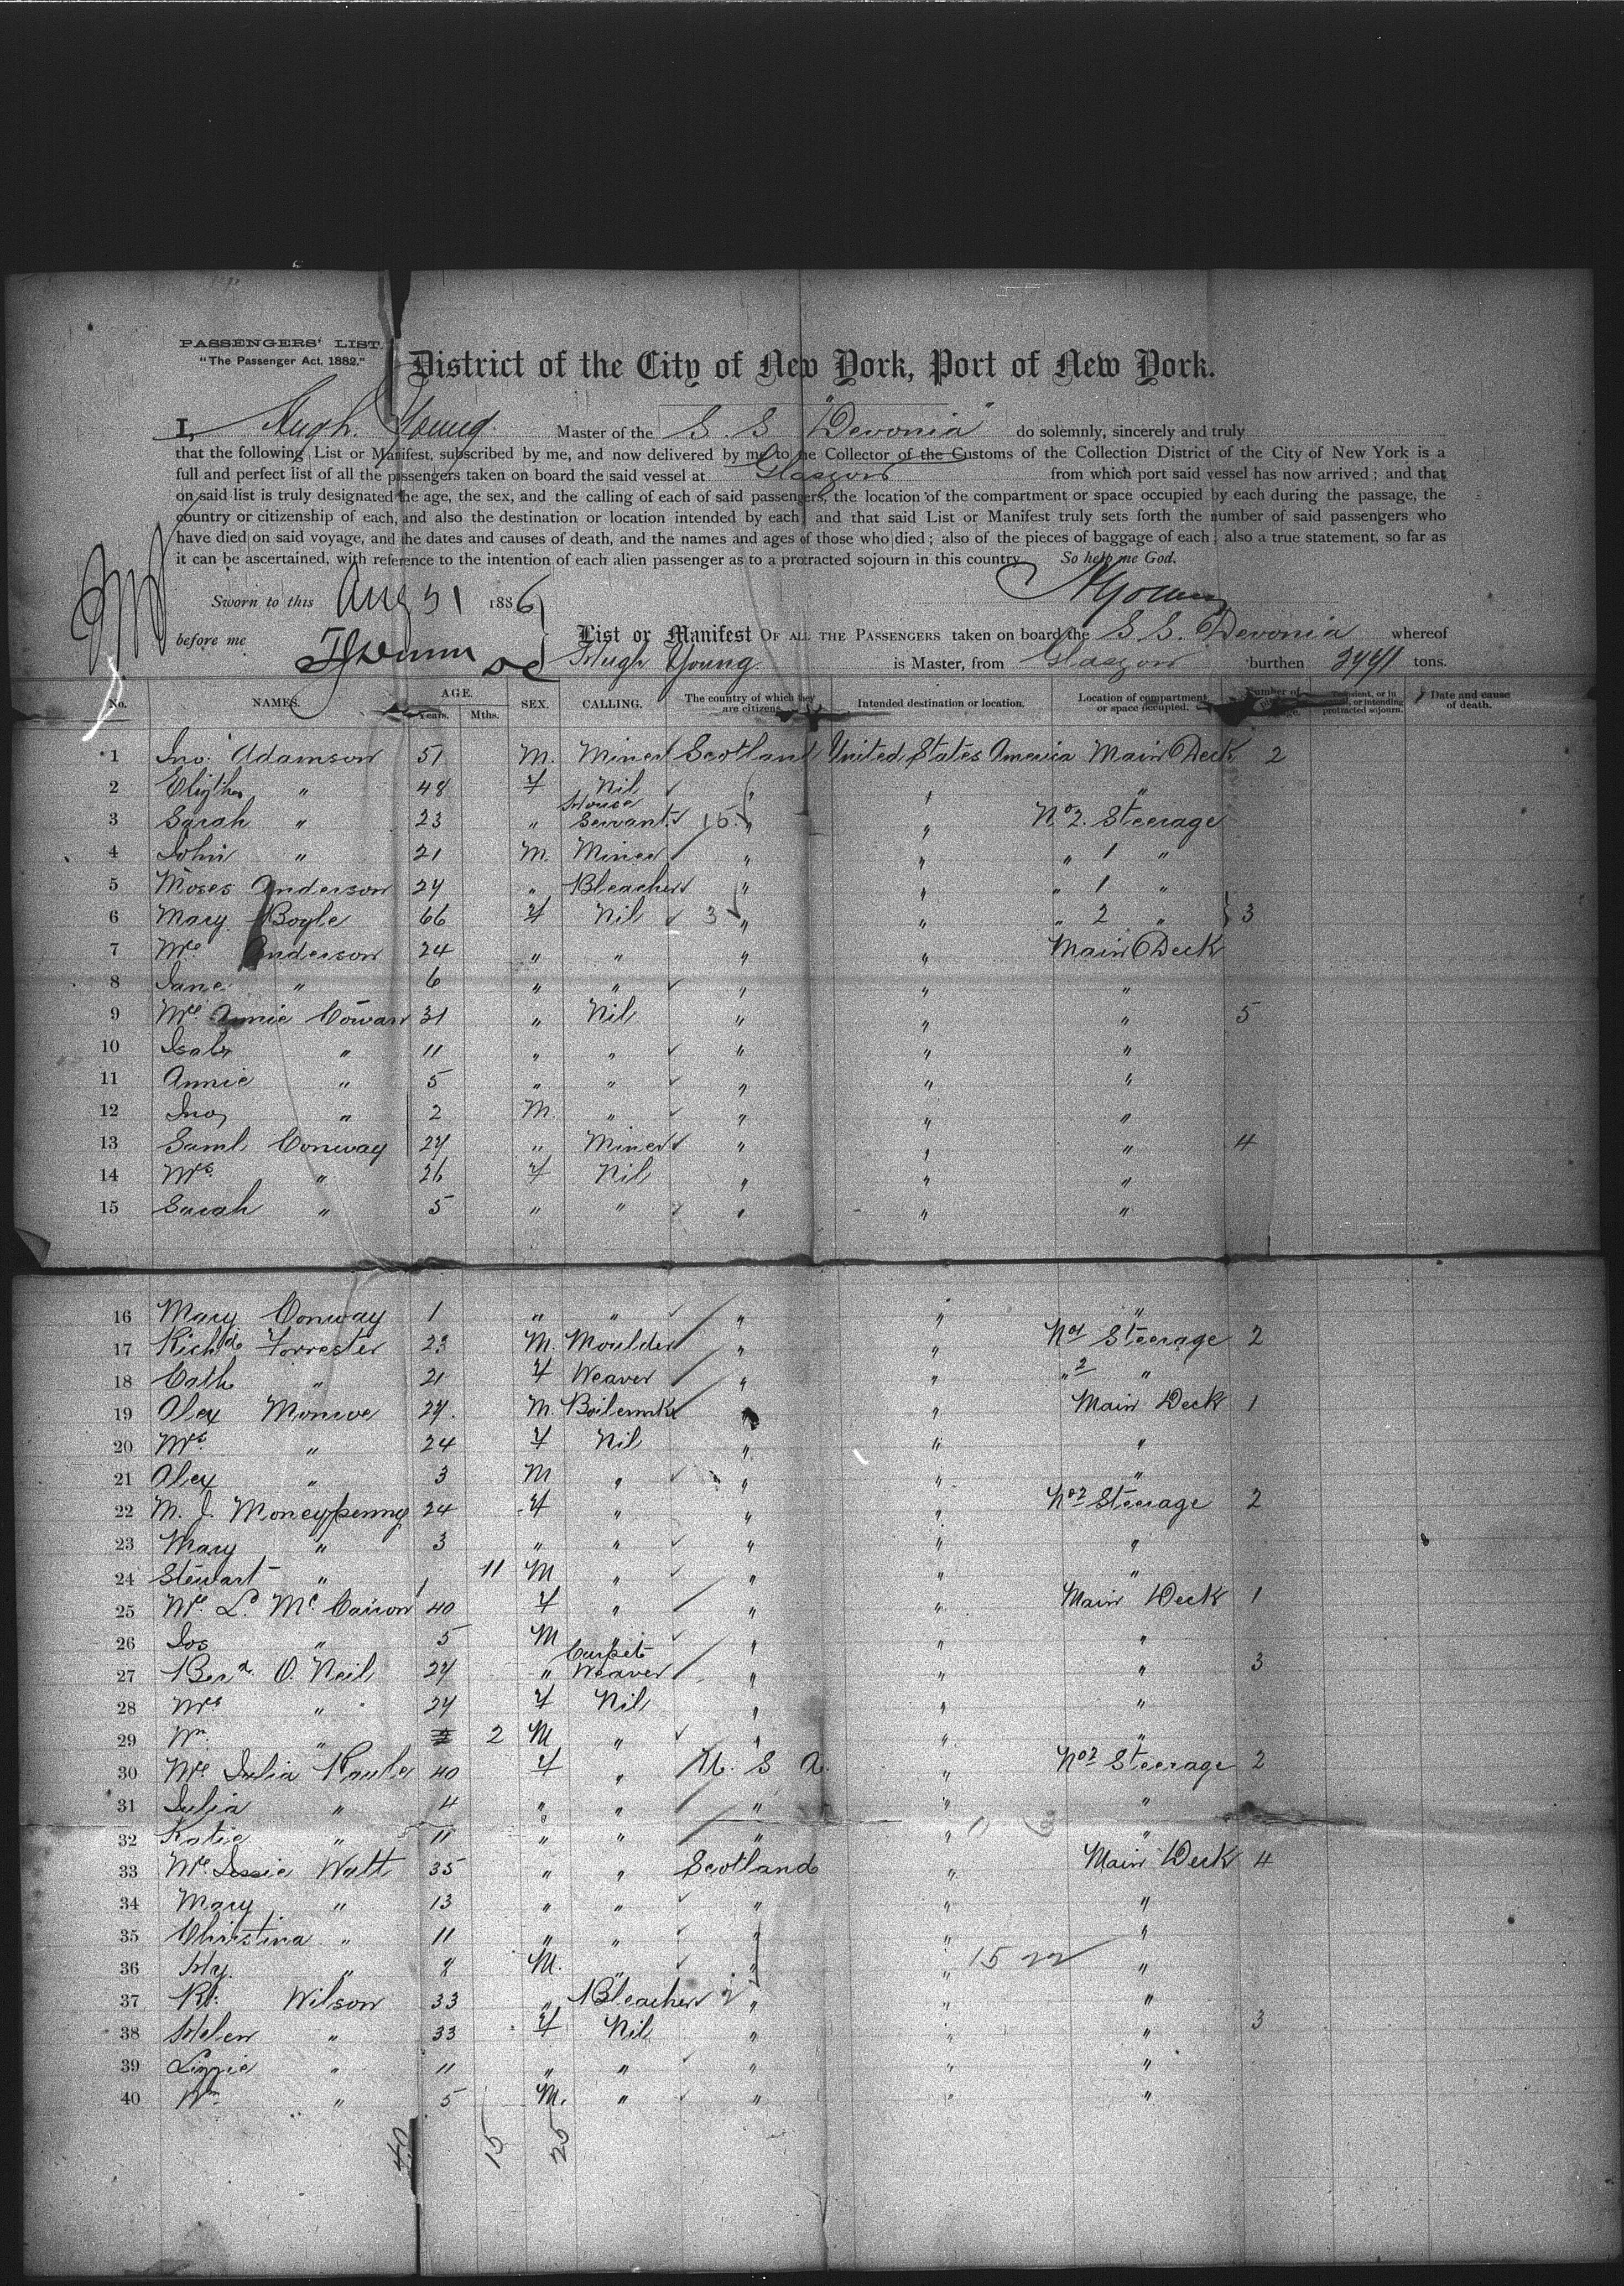 PASSENGERS' LIST.
"The Passenger Act, 1882."
District of the City of New York, Port of New York.
I, Hugh Young Master of the S. S "Devonia" do solemnly, sincerely and truly
that the following List or Manifest, subscribed by me, and now delivered by me to the Collector of the Customs of the Collection District of the City of New York is a
full and perfect list of all the passengers taken on board the said vessel at Glasgow from which port said vessel has now arrived; and that
on said list is truly designated the age, the sex, and the calling of each of said passengers, the location of the compartment or space occupied by each during the passage, the
country or citizenship of each, and also the destination or location intended by each; and that said List or Manifest truly sets forth the number of said passengers who
have died on said voyage, and the dates and causes of death, and the names and ages of those who died; also of the pieces of baggage of each; also a true statement, so far as
it can be ascertained, with reference to the intention of each alien passenger as to a protracted sojourn in this country. So help me God.
HYoung
Sworn to this Aug 31 1886
before me
List or Manifest OF ALL THE PASSENGERS taken on board the S. S. Devonia whereof
Hugh Young is Master, from Glasgow burthen tons.
No. NAMES. AGE. Years. Mths. SEX. CALLING. The country of which they are citizens. Intended destination or location. Location of compartment or space occupied. Number of protracted sojourn. Date and cause of death.
1 Jno. Adamson 51 M. Miner Scotland United States America Main Deck 2
2 Elizth " 48 F Nil " " "
3 Sarah " 23 " House Servant 15 " " No 2. Steerage
4 John " 21 M. Miner " " " 1 "
5 Moses Anderson 27 " Bleacher " " " 1 "
6 Mary Boyle 66 F Nil 3 " " " 2 " } 3
7 Mrs Anderson 24 " " " " Main Deck
8 Jane " 6 " " " " "
9 Mrs Annie Cowan 31 " Nil " " " 5
10 Isab " 11 " " " " "
11 Annie " 5 " " " " "
12 Jno " 2 M. " " " "
13 Saml Conway 27 " Miner " " " 4
14 Mrs " 26 F Nil " " "
15 Sarah " 5 " " " " "
16 Mary Conway 1 " " " " "
17 Richd Forrester 23 M. Moulder " " No 1 Steerage 2
18 Cath " 21 F Weaver " " " 2 "
19 Alex Monroe 27. M. Boilermkr " " Main Deck 1
20 Mrs " 24 F Nil " " "
21 Alex " 3 M " " " "
22 M. J. Moneypenny 24 F " " " No 2 Steerage 2
23 Mary " 3 " " " " "
24 Stewart " 11 M " " " "
25 Mrs 40 F " " " Main Deck 1
26 Jos " 5 M " " " "
27 Berd O. Neil 27 " Carpet Weaver " " " 3
28 Mrs " 27 F Nil " " "
29 Wm. " 2 M " " " "
30 Mrs Julia 40 F " U. S A. " No 2 Steerage 2
31 Julia " 4 " " " " "
32 Katie " 11 " " " " "
33 Mrs Jessie Watt 35 " " Scotland " Main Deck 4
34 Mary " 13 " " " " "
35 Christina " 11 " " " " "
36 Hy. " 8 M. " " " 15 22 "
37 Rt. Wilson 33 " Bleacher " " "
38 Helen " 33 F Nil " " " 3
39 Lizzie " 11 " " " " "
40 Wm " 5 M. " " " "
40 15 25